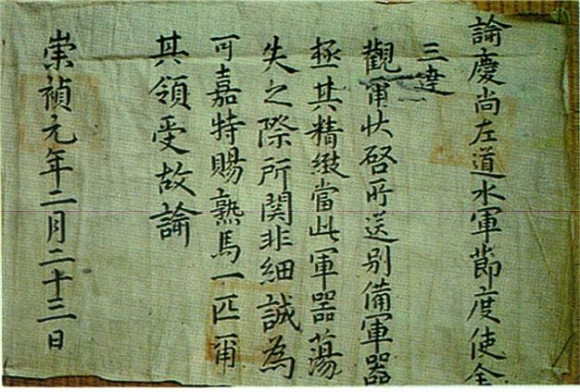 諭慶尚左道水軍節度使全
三達
觀爾狀啓所送別備軍器
極其精緻當此軍器蕩
失之際所関非細誠為
可嘉特賜熟馬一匹爾
其領受故諭
崇禎元年二月二十三日